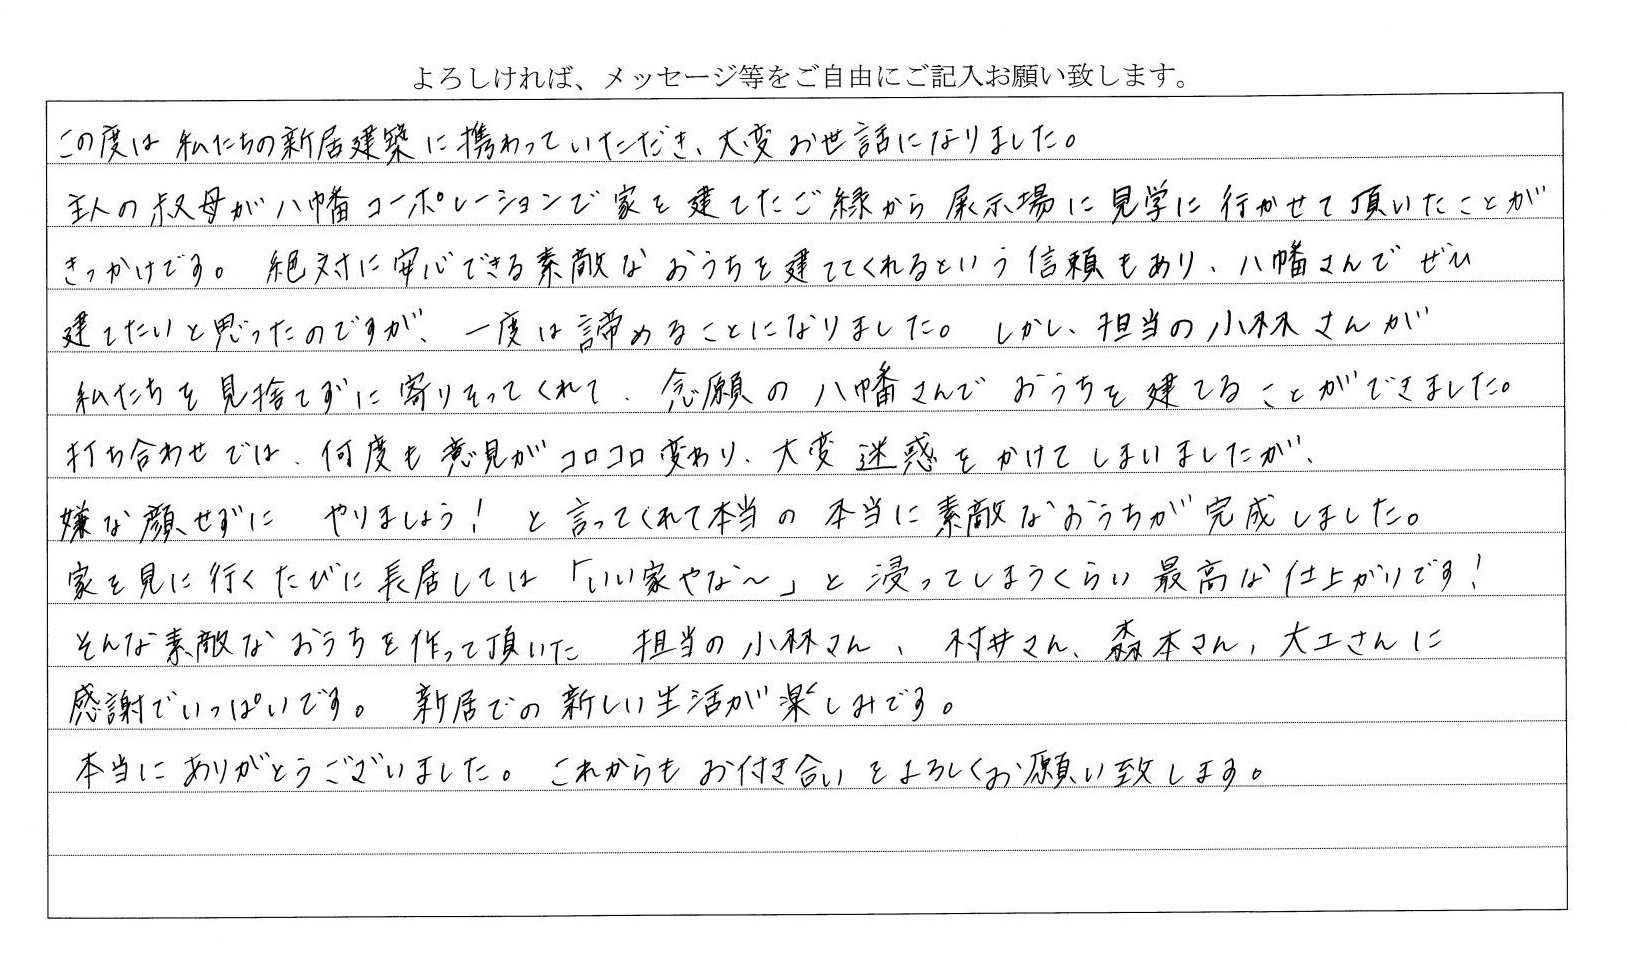 よろしければ、メッセージ等をご自由にご記入お願い致します。
この度は私たちの新居建築に携わっていただき、大変お世話になりました。
主人の叔母が八幡コーポレーションで家を建てたご縁から展示場に見学に行かせて頂いたことが
きっかけです。絶対に安心できる素敵なおうちを建ててくれるという信頼もあり、八幡さんでぜひ
建てたいと思ったのですが、一度は諦めることになりました。しかし、担当の小林さんが
私たちを見捨てずに寄りそってくれて、念願の八幡さんでおうちを建てることができました。
打ち合わせでは、何度も意見がコロコロ変わり、大変迷惑をかけてしまいましたが、
嫌な顔せずに やりましょう!と言ってくれて本当の本当に素敵なおうちが完成しました。
家を見に行くたびに長居しては「いい家やな〜」と浸ってしまうくらい最高な仕上がりです!
そんな素敵なおうちを作って頂いた 担当の小林さん、村井さん、森本さん,大工さんに
感謝でいっぱいです。新居での新しい生活が楽しみです。
本当にありがとうございました。これからもお付き合いをよろしくお願い致します。